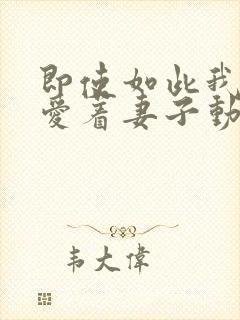 即使如此我
愛着妻子動
韦大偉